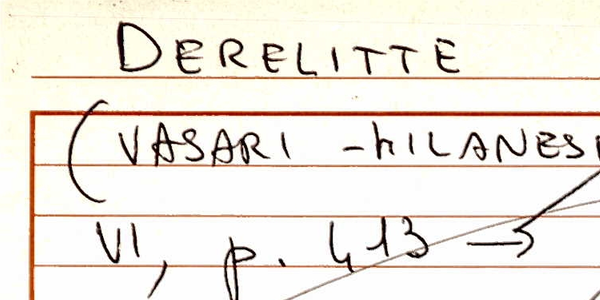 DERELITTE
(VASARI - MILANESI
VI, p. 413 →